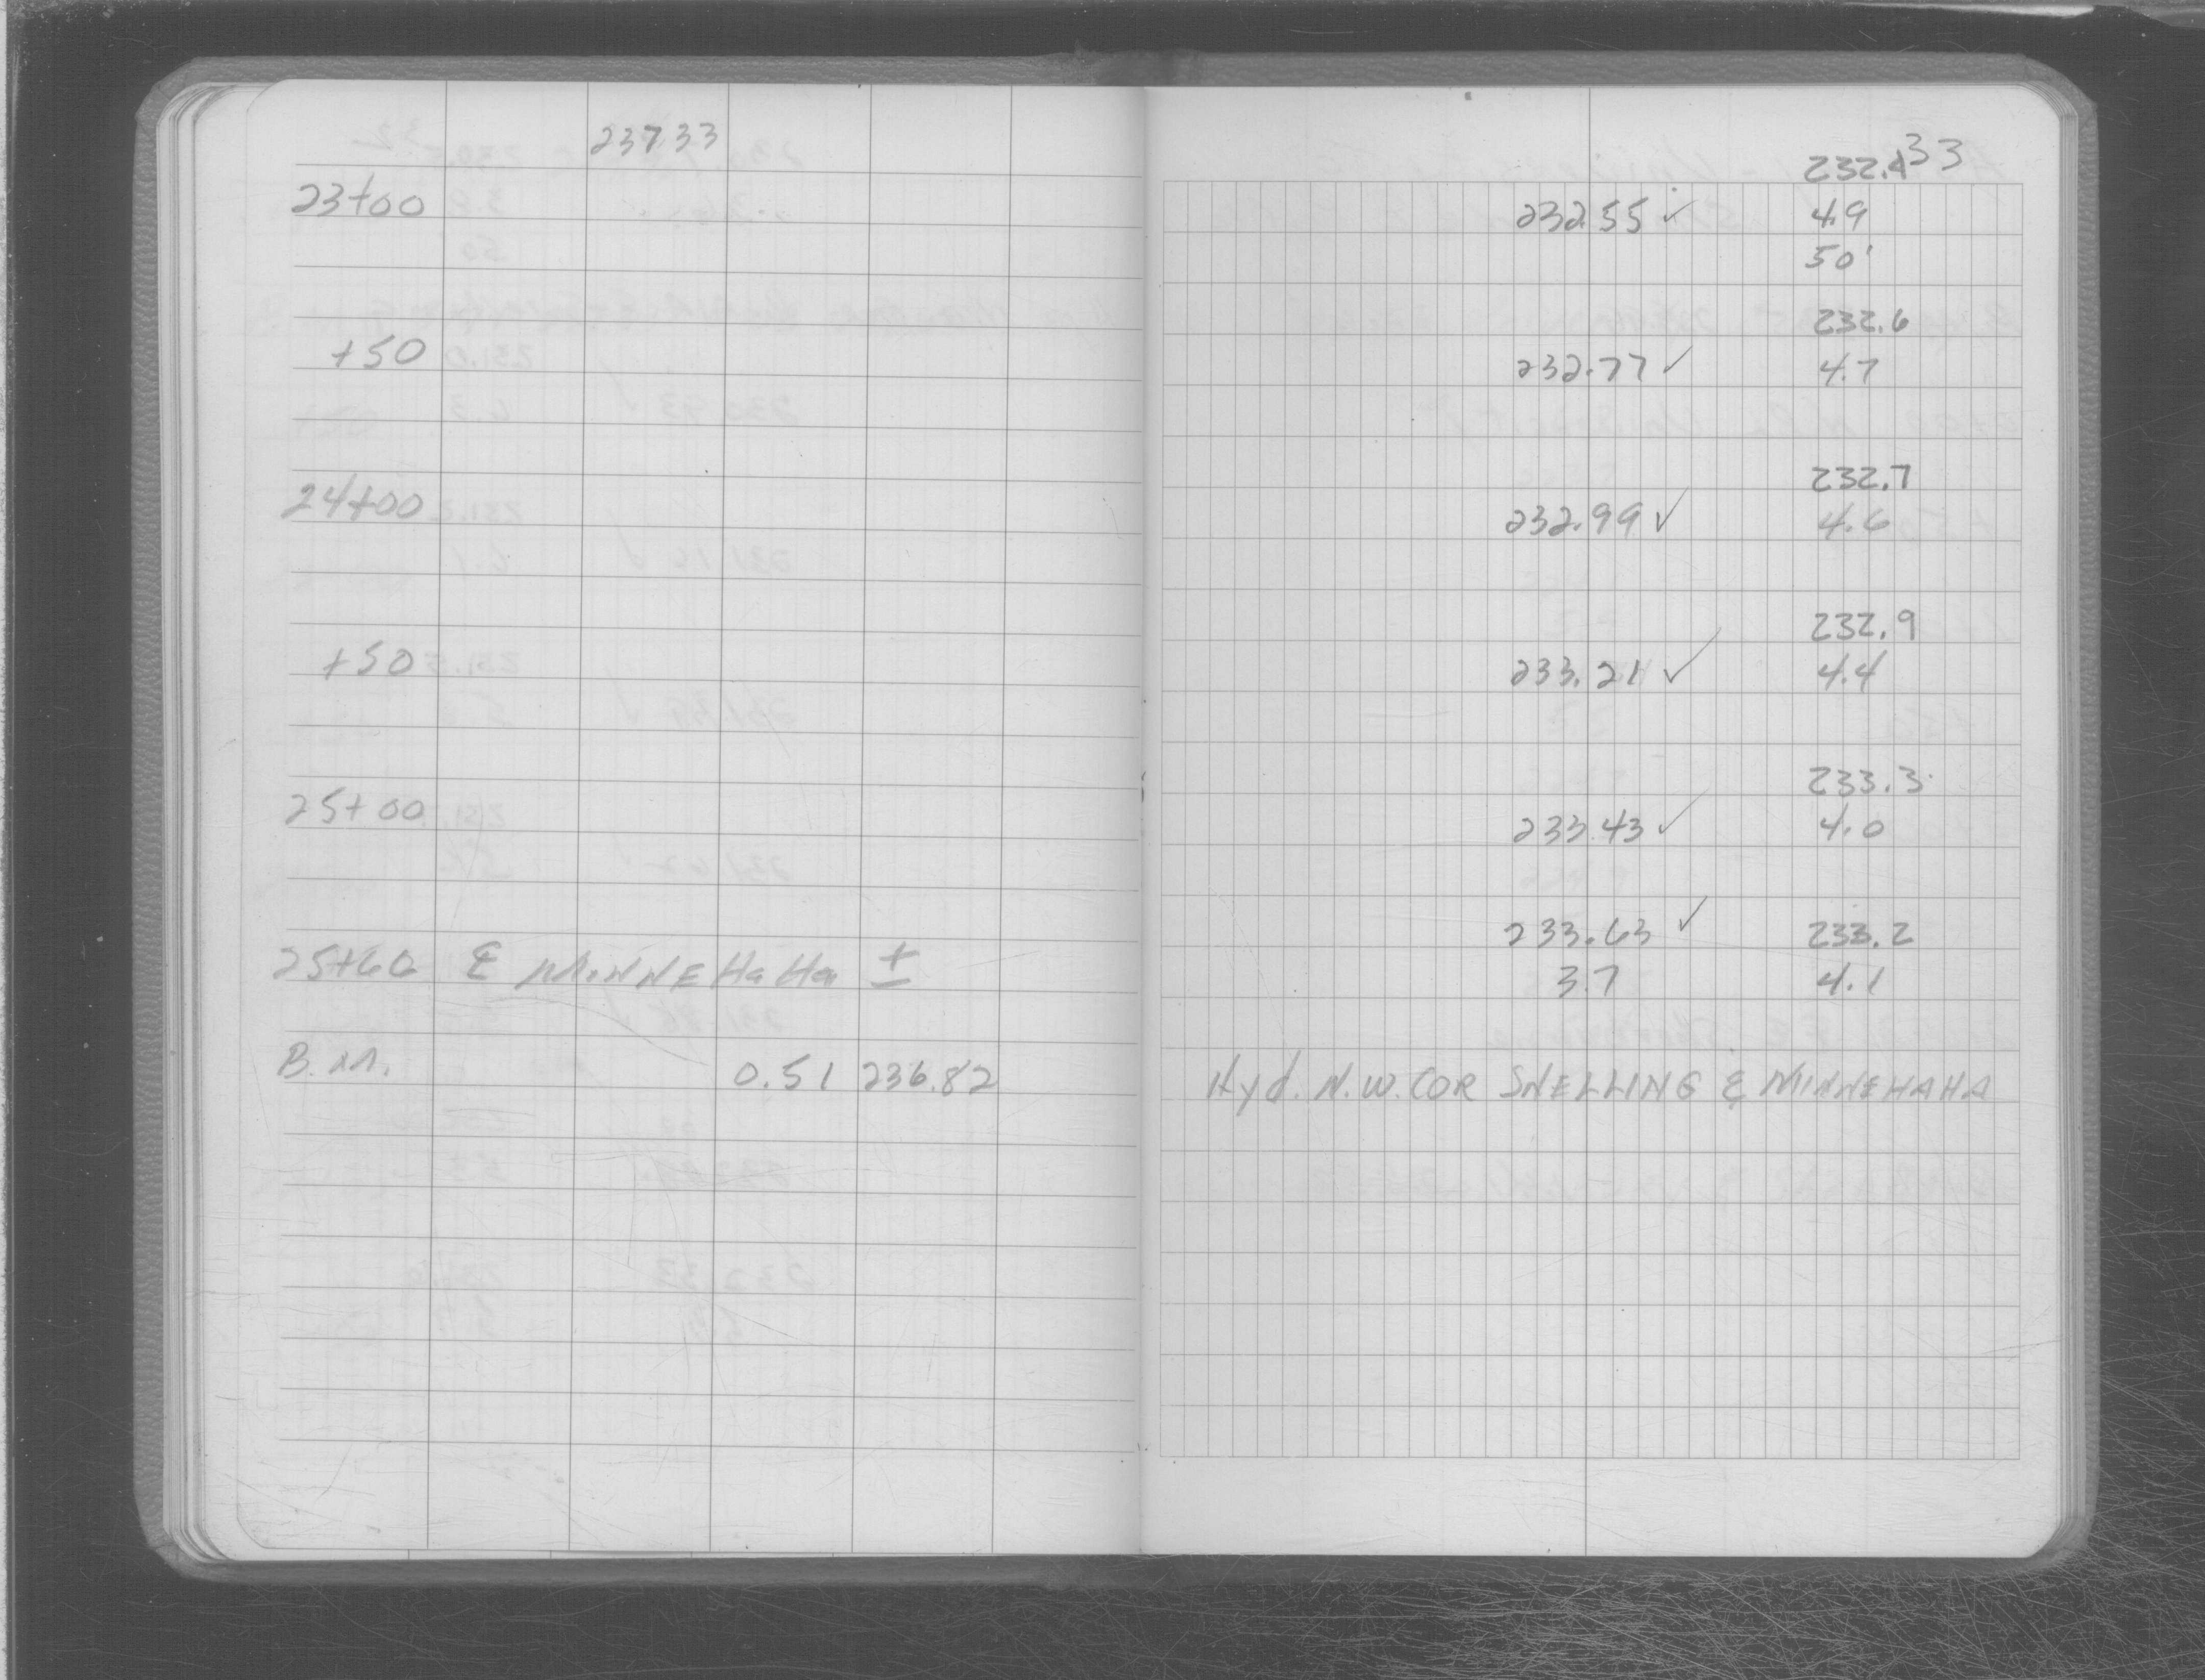 237.33
23+00
+50
24+00
+50
25+00
25+60 ℄ MINNEHaHa ±
B.M. 0.51 236.82
33
232.4
232.55 ✓ 4.9
50'
232.6
232.77 ✓ 4.7
232.7
232.99 ✓ 4.6
232.9
233.21 ✓ 4.4
233.3
233.43 ✓ 4.0
233.63 ✓ 233.2
3.7 4.1
Hyd. N.W. COR SNELLING & MINNEHAHA